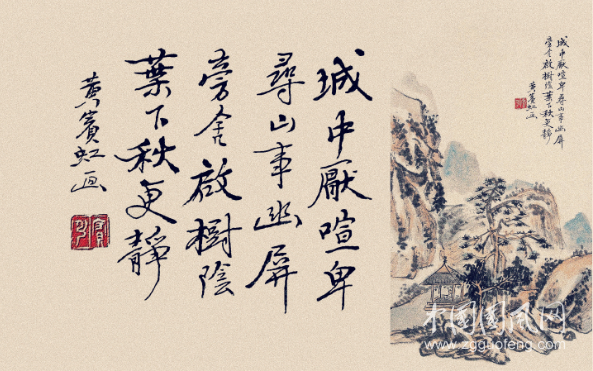 城中厭喧卑
尋山事幽屏
旁舍啟樹陰
葉下秋更靜
黄賓虹画
城中厭喧卑尋山事幽屏
旁舍啟樹陰葉下秋更靜
黄賓虹画
www.zgguofeng.com